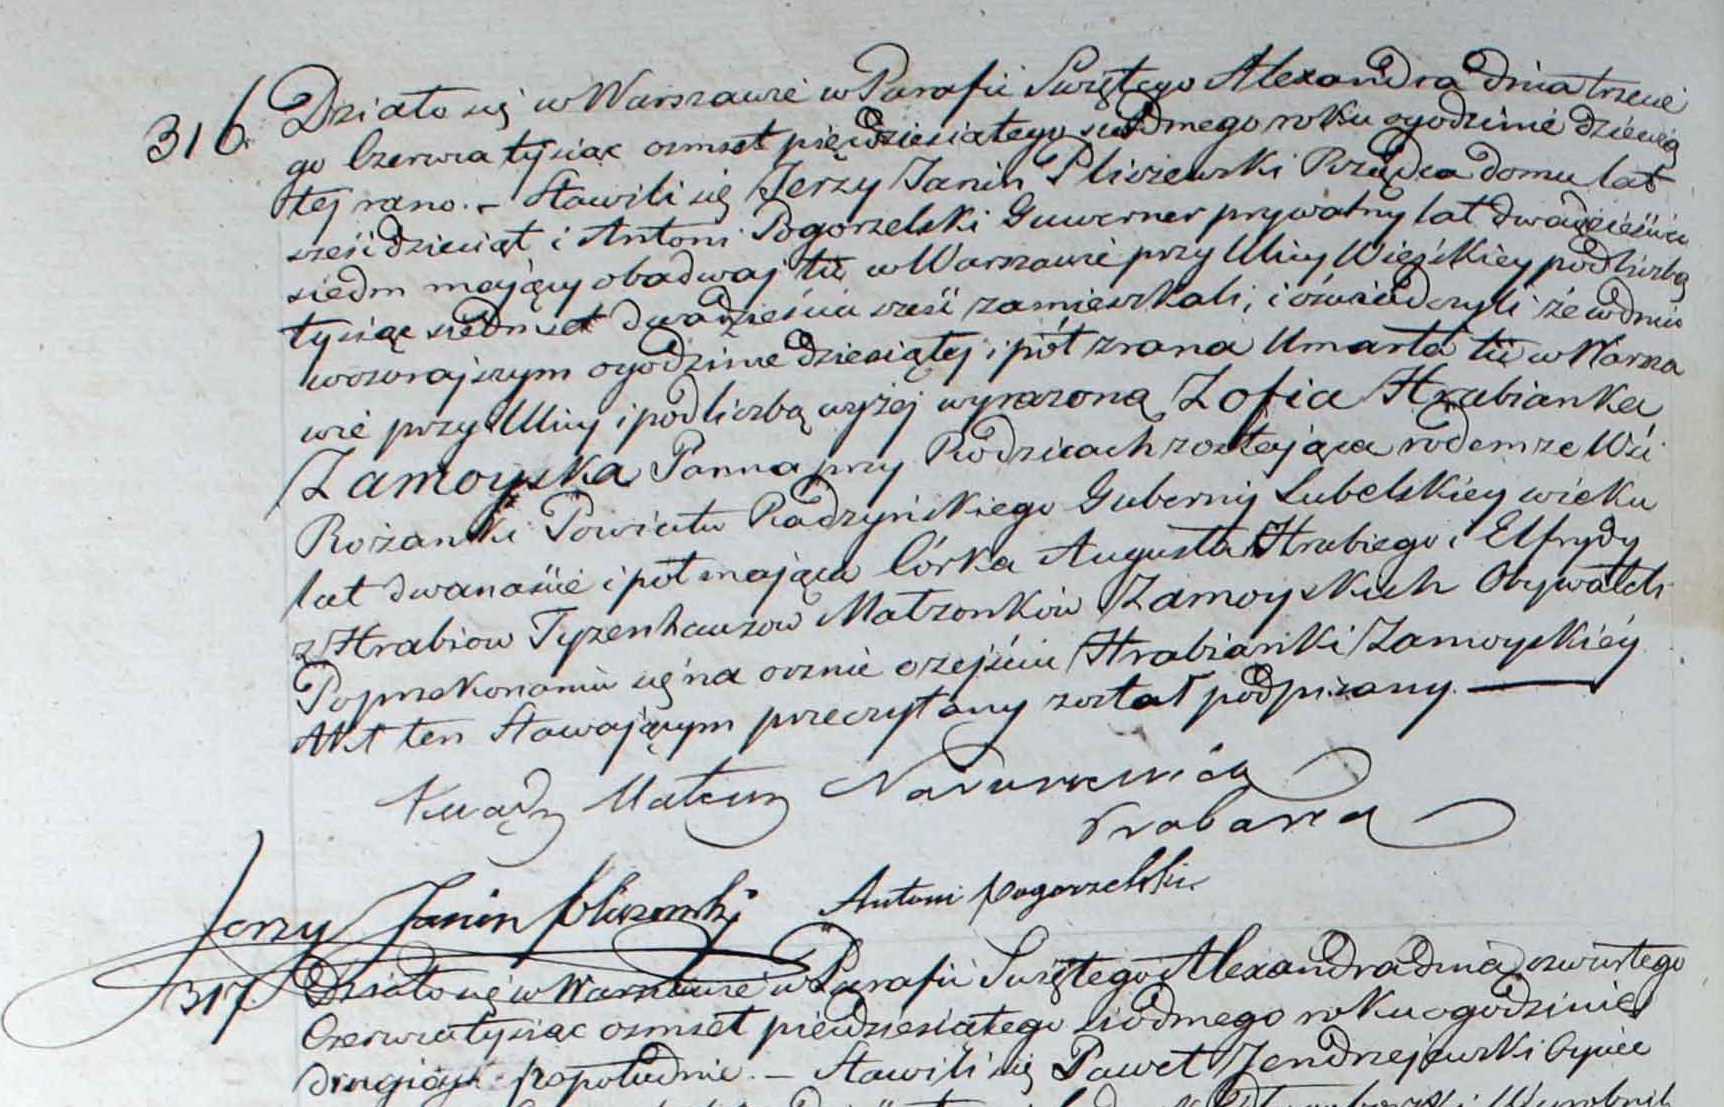 316. Działo się w Warszawie w Parafii Swiętego Alexandra dnia trzecie
go Czerwca tysiąc osmset pięcdziesiątego siódmego roku o godzinie dziewią
tej rano. – Stawili się Jerzy Janin Pliszewski Rządca domu lat
sześćdziesiąt i Antoni Pogorzelski Guwerner prywatny lat dwadzieścia
siedm mający obadwaj tu w Warszawie przy Ulicy Wieyskiey pod liczbą
tysiąc siedmset dwadzieścia sześć zamieszkali, i oświadczyli że w dniu
wczorajszym o godzinie dziesiątej i pół z rana Umarła tu w Warsza
wie przy Ulicy i pod liczbą wyżej wyrażoną Zofia Hrabianka
Zamoyska Panna przy Rodzicach zostająca rodem ze Wsi
Rożanki Powiatu Radzyńskiego Gubernij Lubelskiey wieku
lat dwanaście i pół mająca Córka Augusta Hrabiego i Elfrydy
z Hrabiow Tyzenhauzow Małżonków Zamoyskich Obywateli
Po przekonaniu się na ocznie o zejściu Hrabianki Zamoyskiéy
Akt ten Stawającym przeczytany został podpisany. —
Xiądz Mateusz
Proboszcz
Jerzy Janin Pliszewski Antoni Pogorzelski
317. Działo się w Warszawie w Parafii Swiętego Alexandra dnia czwartego
Czerwca tysiąc osmset pięcdziesiątego siódmego roku o godzinie
drugiéj po południu. – Stawili się Paweł Jendrzejewski